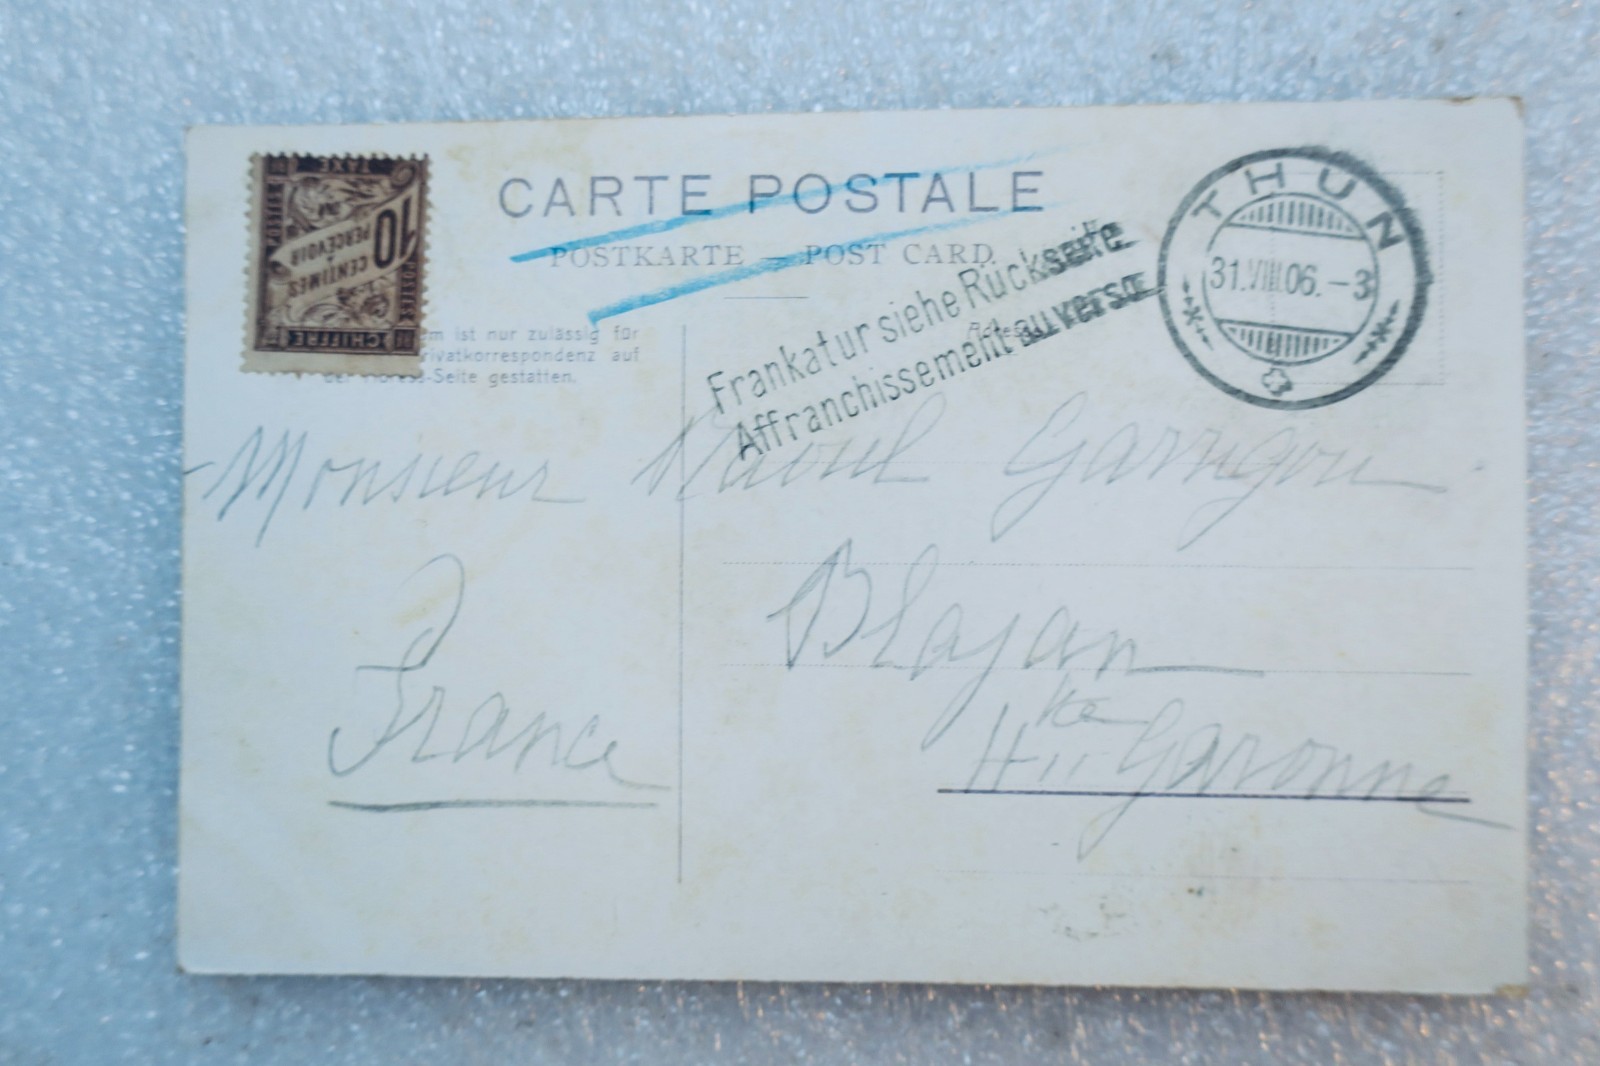 CARTE POSTALE
POSTKARTE — POST CARD.
CHIFFRE
TAXE
POSTES
POSTES
10
CENTIMES
À
PERCEVOIR
THUN
31.VIII.06.-3
Frankatur siehe Rückseite
Affranchissement au verso
m ist nur zulässig für
rivatkorrespondenz auf
der Adress-Seite gestatten.
Adresse
Monsieur Raoul Garrigou
Blajan
Hte Garonne
France